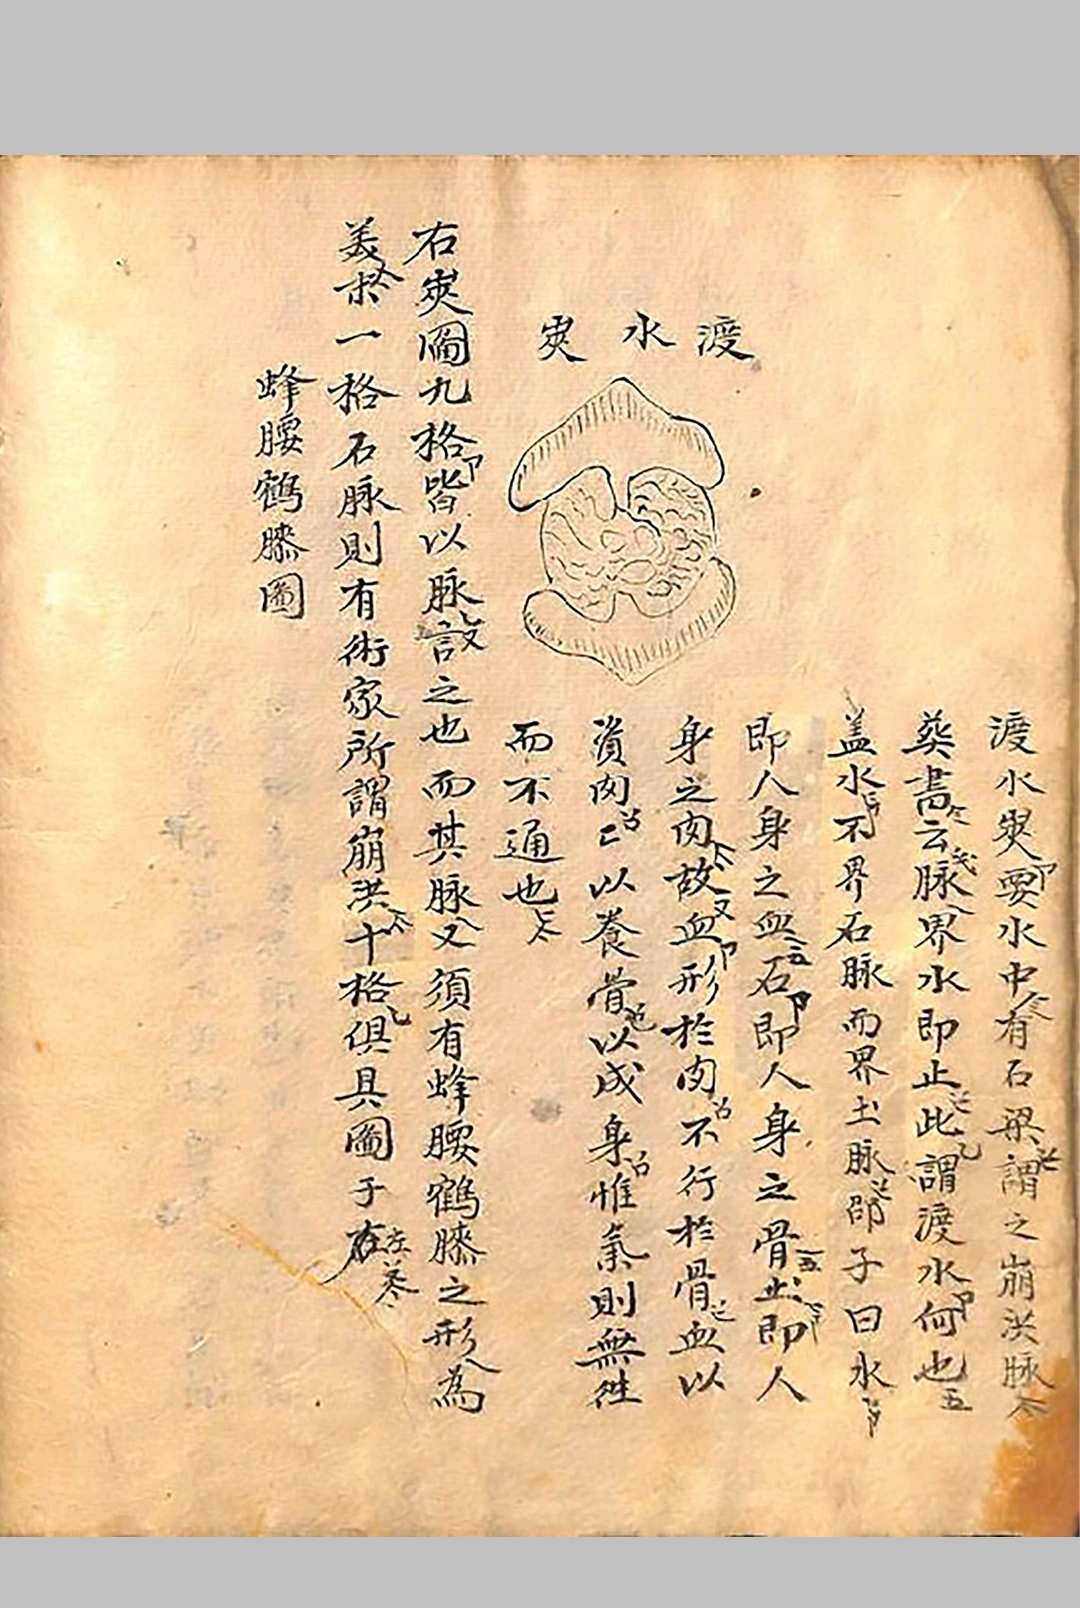 渡水峽
渡水峽要水中有石梁謂之崩洪脉
葬書云脉界水即止此謂渡水何也
盖水不界石脉而界土脉邵子曰水
即人身之血石即人身之骨土即人
身之肉故血形於肉不行於骨血以
資肉〻以養骨以成身惟氣則無往
而不通也
右峽圖九格皆以脉設之也而其脉又須有蜂腰鶴膝之形為
美於一格石脉則有術家所謂崩洪十格俱具圖于左
蜂腰鶴膝圖